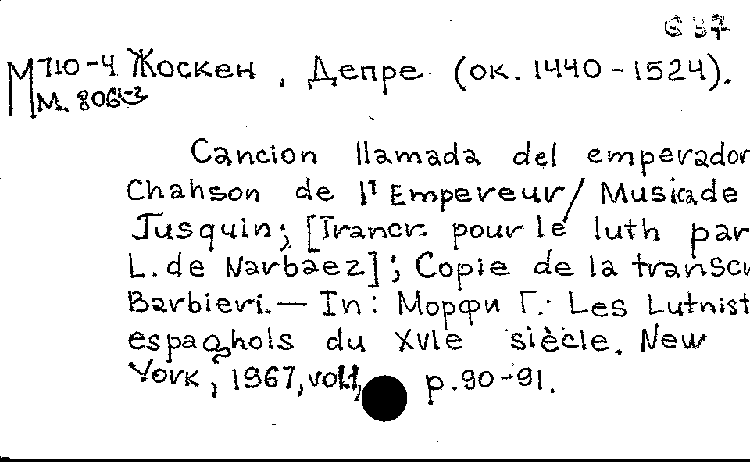 М 710-4 Жоскен, Депре (ок. 1440-1524).
М. 806-3
Cancion llamada del emperador
Chanson de l' Empereur / Musica de
Jusquin; [Trancr. pour le luth par
L. de Narbaez]; Copie de la transcr
Barbieri. — In: Морфи Г. Les Lutnist
espagnols du XVIe siècle. New
York, 1967, vol1, p. 90-91.